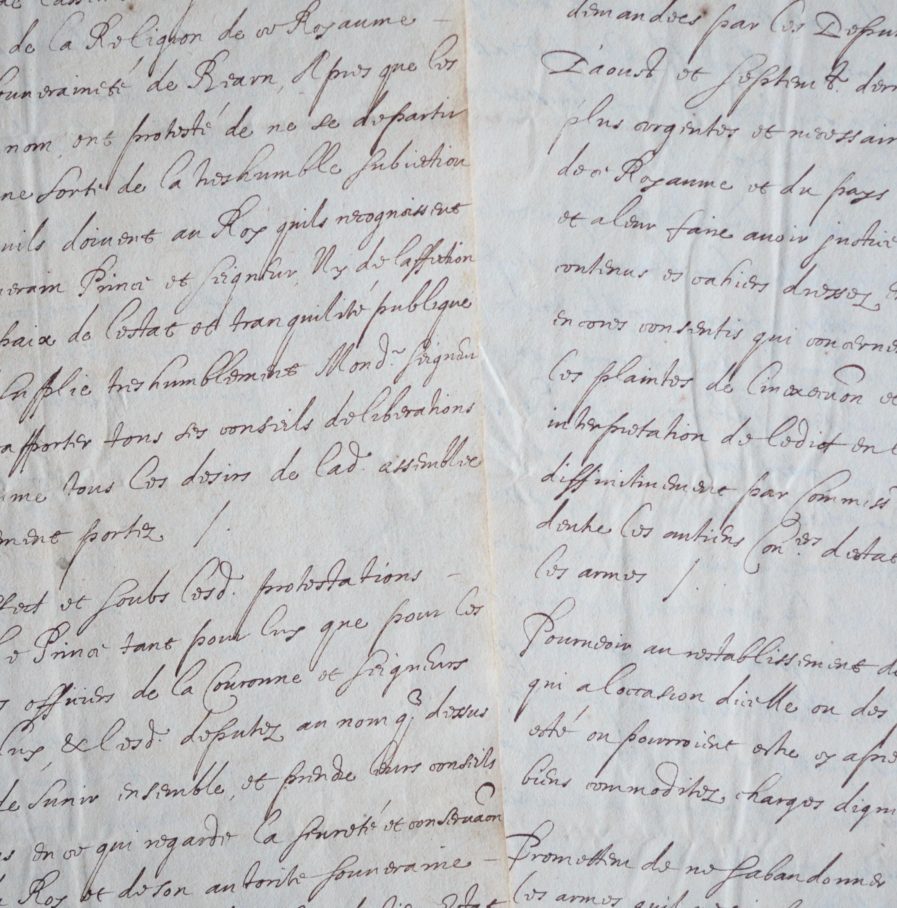 de la Religion de ce Royaume
souveraineté de Bearn, Apres que les
nom, ont protesté de ne se departir
une sorte de la treshumble subiection
quils doivent au Roy quils recognoissent
Prince et seigneur, Ny de laffection
paix de lestat et tranquilité publique
supplie treshumblement Mond. seigneur
apporter tous ses conseils deliberations
tous les desirs de lad. assemblee
portez /.
et soubs lesd. protestations
le Prince tant pour luy que pour les
officiers de la Couronne et seigneurs
luy, & lesd. deputez au nom q dessus
de sunir ensemble, et prendre leurs conseils
en ce qui regarde la seureté et conservaon
Roy et de son autorite souveraine
demandees par les Deputez
Daoust et septemb. dern
plus urgentes et necessair
de ce Royaume et du pays
et a leur faire avoir justice
contenus es cahiers dressez
encores consentis qui concerne
les plaintes de linexecuon et
interpretation de ledict en
diffinitivement par Commiss
dentre les antiens Con.ers destat
les armes /.
Pourveoir au restablissement de
qui a loccasion dicelle ou des
esté ou pourroient estre cy apre
biens commoditez charges digni
Promettent de ne sabandonner
les armes